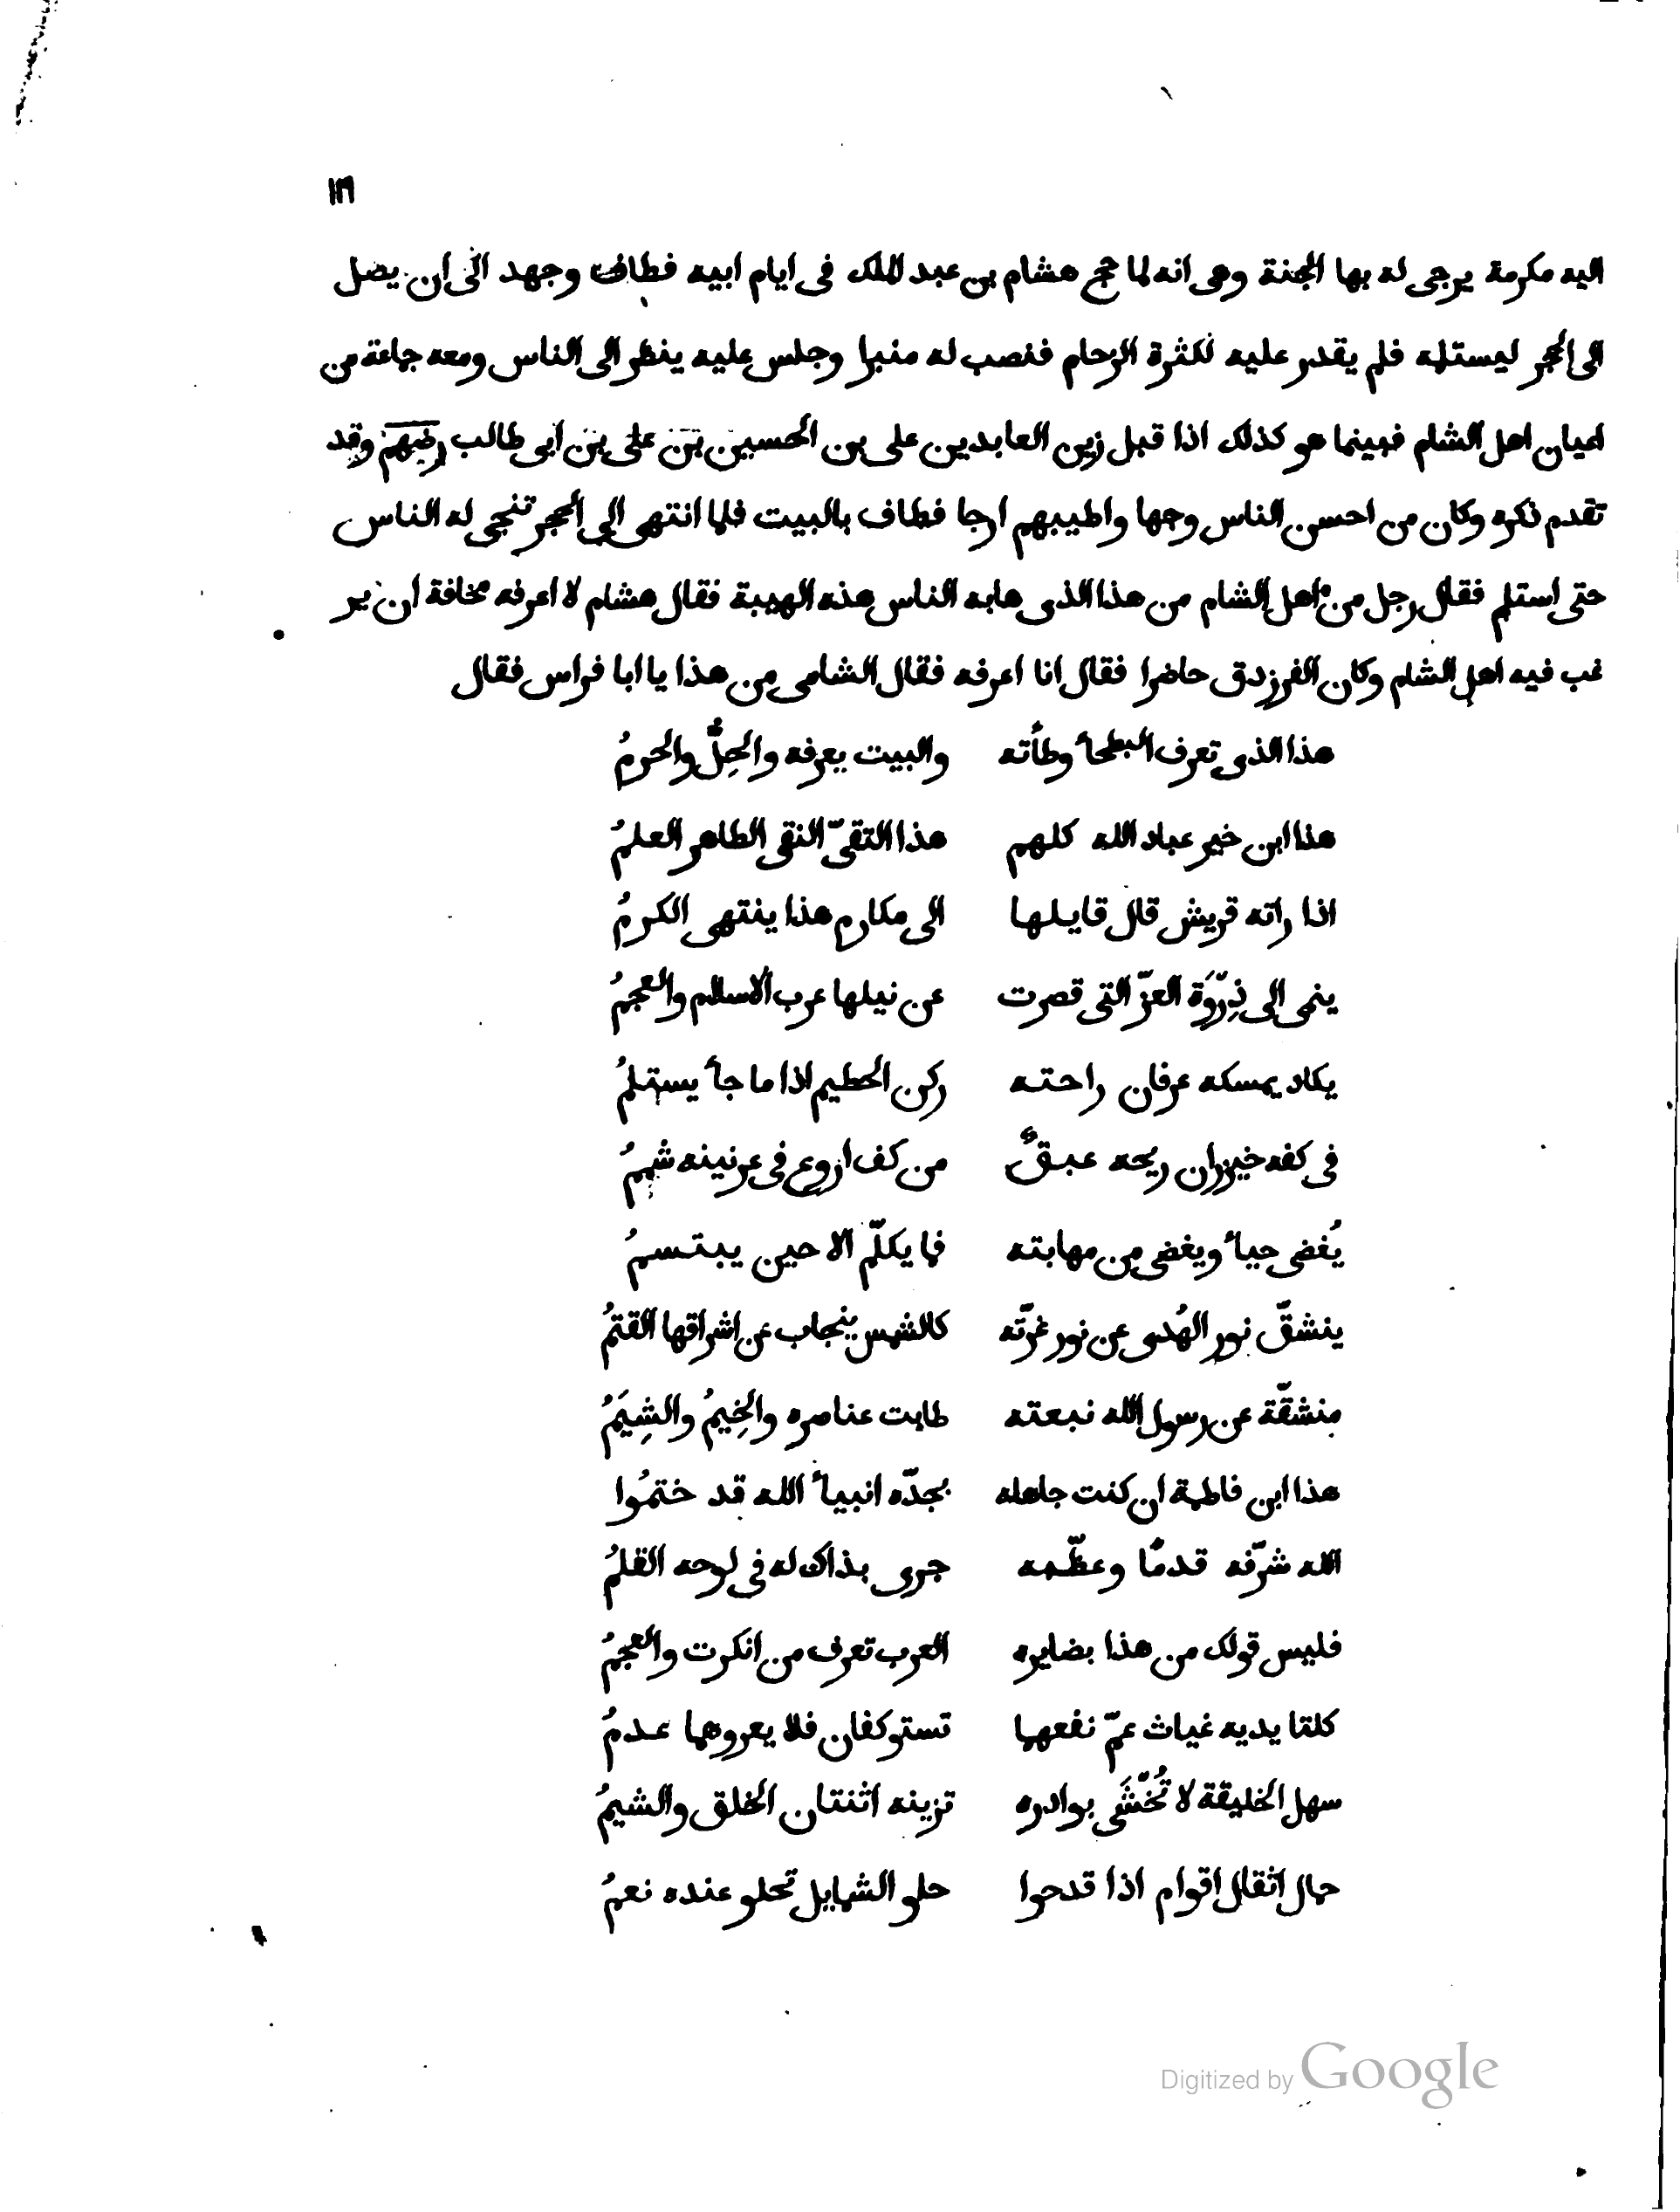 ١٣٦
اليه مكرمة يرجى له بها الجنة وهى انه لما حج هشام بن عبد الملك فى ايام ابيه فطاف وجهد الى ان يصل
الى الحجر ليستلمه فلم يقدر عليه لكثرة الزحام فنصب له منبرا وجلس عليه ينظر الى الناس ومعه جماعة من
اعيان اهل الشام فبينما هو كذلك اذا قبل زين العابدين على بن الحسين بن على بن ابى طالب رضهم وقد
تقدم ذكره وكان من احسن الناس وجها واطيبهم ارجا فطاف بالبيت فلما انتهى الى الحجر تنجى له الناس
حتى استلم فقال رجل من اهل الشام من هذا الذى هابه الناس هذه الهيبة فقال هشام لا اعرفه مخافة ان ير
غب فيه اهل الشام وكان الفرزدق حاضرا فقال انا اعرفه فقال الشامى من هذا يا ابا فراس فقال
هذا الذى تعرف البطحأ وطأته والبيت يعرفه والحِلُّ والحرمُ
هذا ابن خير عباد الله كلهم هذا التقىّ النقى الطاهر العلمُ
اذا راته قريش قال قايلها الى مكارم هذا ينتهى الكرمُ
ينمى الى ذِرّوَة العزّ التى قصرت عن نيلها عرب الاسلام والعجمُ
يكاد يمسكه عرفان راحته ركن الحطيم اذا ما جأ يستلمُ
فى كفه خيزران ريحه عبقٌ من كف اروع فى عرنينه شممُ
يُغضى حيأ ويغضى من مهابته فما يكلّم الا حين يبتسمُ
ينشقّ نور الهُدى عن نور غرّته كالشمس ينجاب عن اشراقها القتمُ
منشقّة عن رسول الله نبعته طابت عناصره والخِيمُ والشِيَمُ
هذا ابن فاطمة ان كنت جاهله بجدّه انبيأ الله قد ختمُوا
الله شرّفه قدمًا وعظّمه جرى بذاك له فى لوحه القلمُ
فليس قولك من هذا بضايره العرب تعرف من انكرت والعجمُ
كلتا يديه غياث عمّ نفعهما تستوكفان فلا يعروهما عدمُ
سهل الخليقة لا تُخّشَى بوادره تزينه اثنتان الخلق والشيمُ
حمال اثقال اقوام اذا قدحوا حلو الشمايل تحلو عنده نعمُ
Digitized by Google